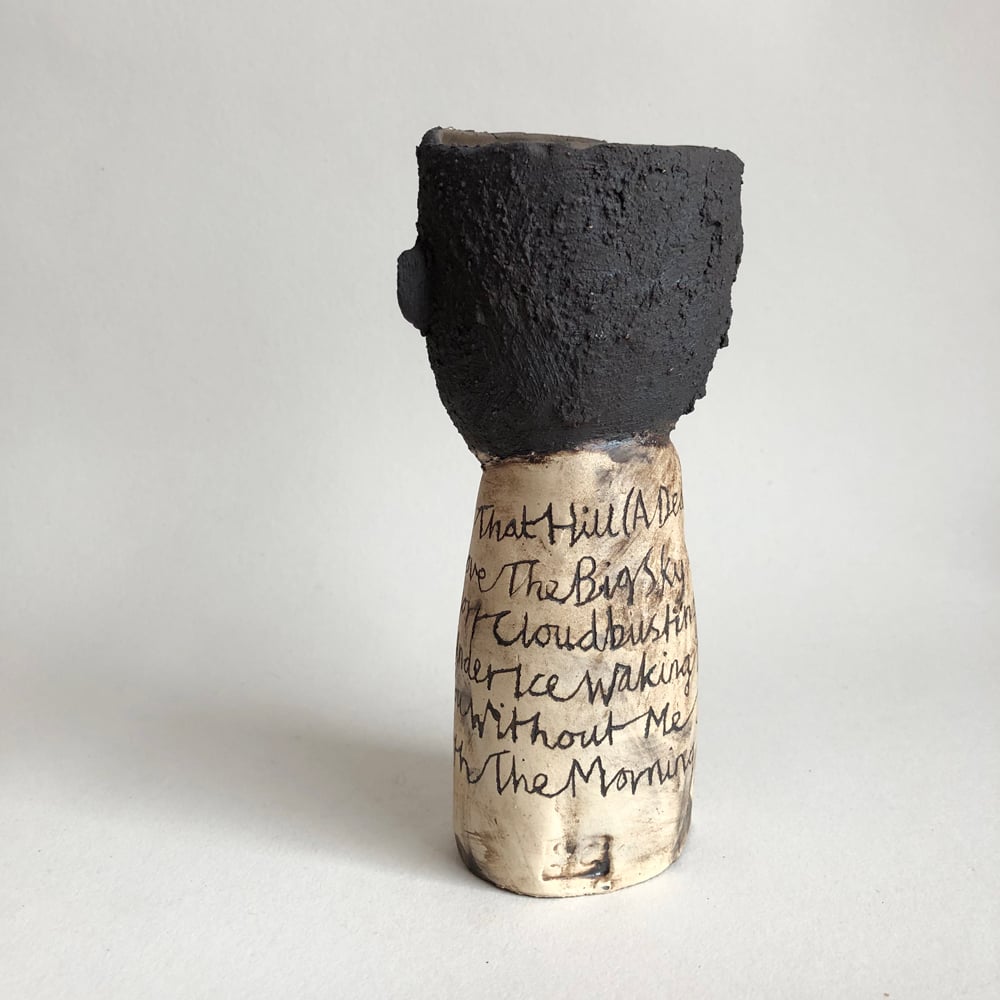 That Hill (A Dea
ve The Big Sky
Cloudbustin
nder Ice Waking
Without Me
h The Morning